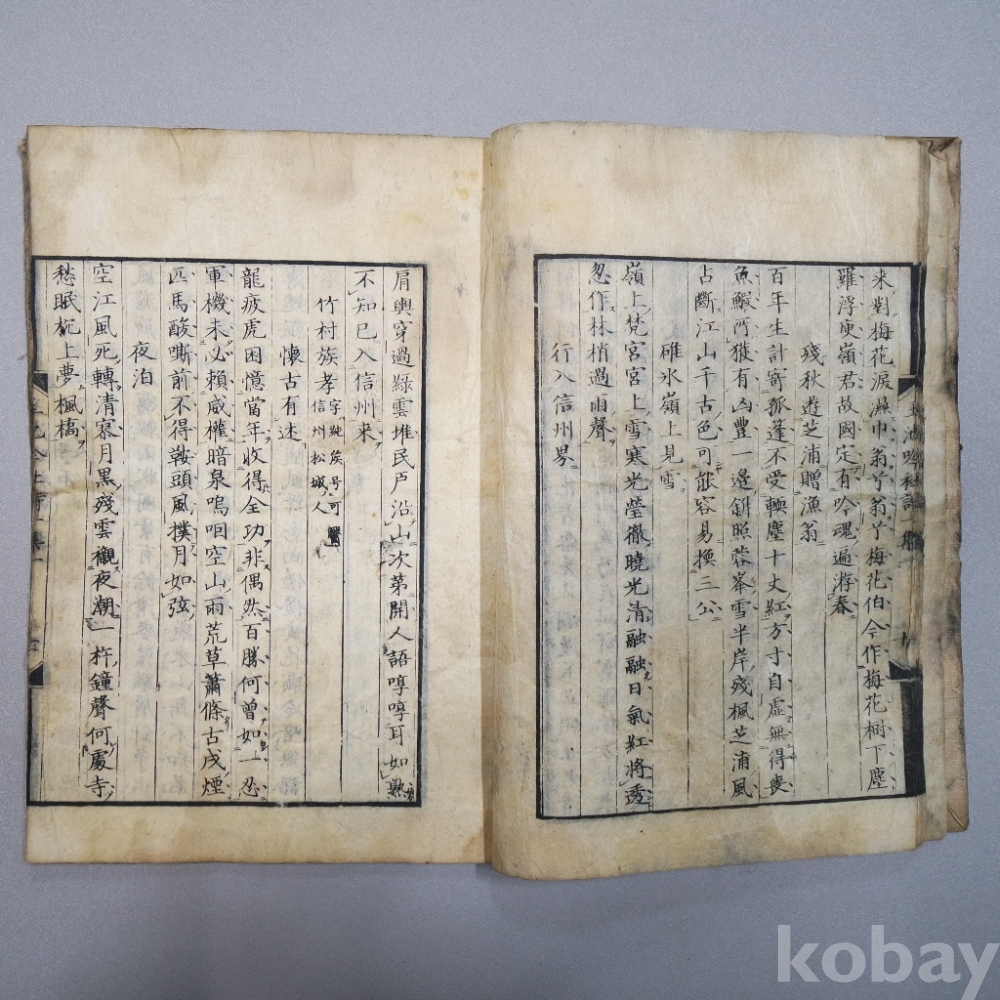 來對梅花淚濕巾翁兮翁兮梅花伯今作梅花樹下塵
羅浮庾嶺君故國定有吟魂遍游春
殘秋遊芝浦贈漁翁
百年生計寄孤蓬不受輭塵十丈紅方寸自虛無得喪
魚鰕所獲有凶豐一邊斜照蓉峯雪半岸殘楓芝浦風
占斷江山千古色可能容易換三公
碓氷嶺上見雪
嶺上梵宮宮上雪寒光瑩徹曉光清融融日氣紅將透
忽作林梢過雨聲
行入信州界
肩輿穿過綠雲堆民戶沿山次第開人語啍啍耳如熟
不知已入信州來
竹村族孝字純侯号可
信州松城人
懷古有述
龍疲虎困憶當年收得全功非偶然百勝何曾如一忍
軍機未必賴威權暗泉嗚咽空山雨荒草蕭條古戍煙
匹馬酸嘶前不得鞍頭風撲月如弦
夜泊
空江風死轉清寥月黑殘雲觀夜潮一杵鐘聲何處寺
愁眠枕上夢楓橋
kobay